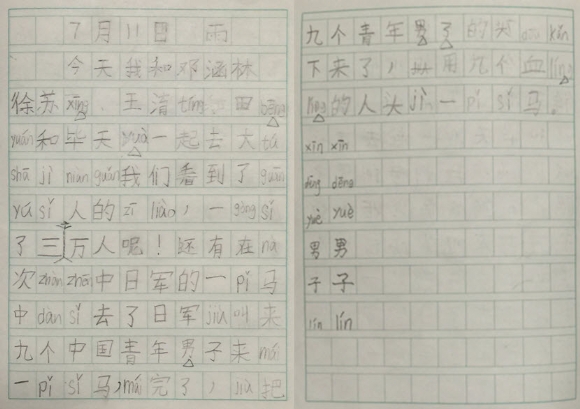 7月11日 雨
今天我和邓涵林
徐苏xīng、王清tíng、田dēng
yuán和毕天yuè一起去大tú
shā jì niàn guǎn我们看到了guān
yú sǐ人的zī liào，一gòng sǐ
了三万人呢！还有在nà
次zhàn zhēng中日军的一pǐ马
中dàn sǐ去了日军jiù叫来
九个中国青年男子来mái
一pǐ sǐ马，mái完了，jiù把
九个青年男了的头 kǎn
下来了，用九个血lín
lín的人头jì一pǐ sǐ马。
xīn xīn
dēng dēng
yuè yuè
男男
子子
lín lín